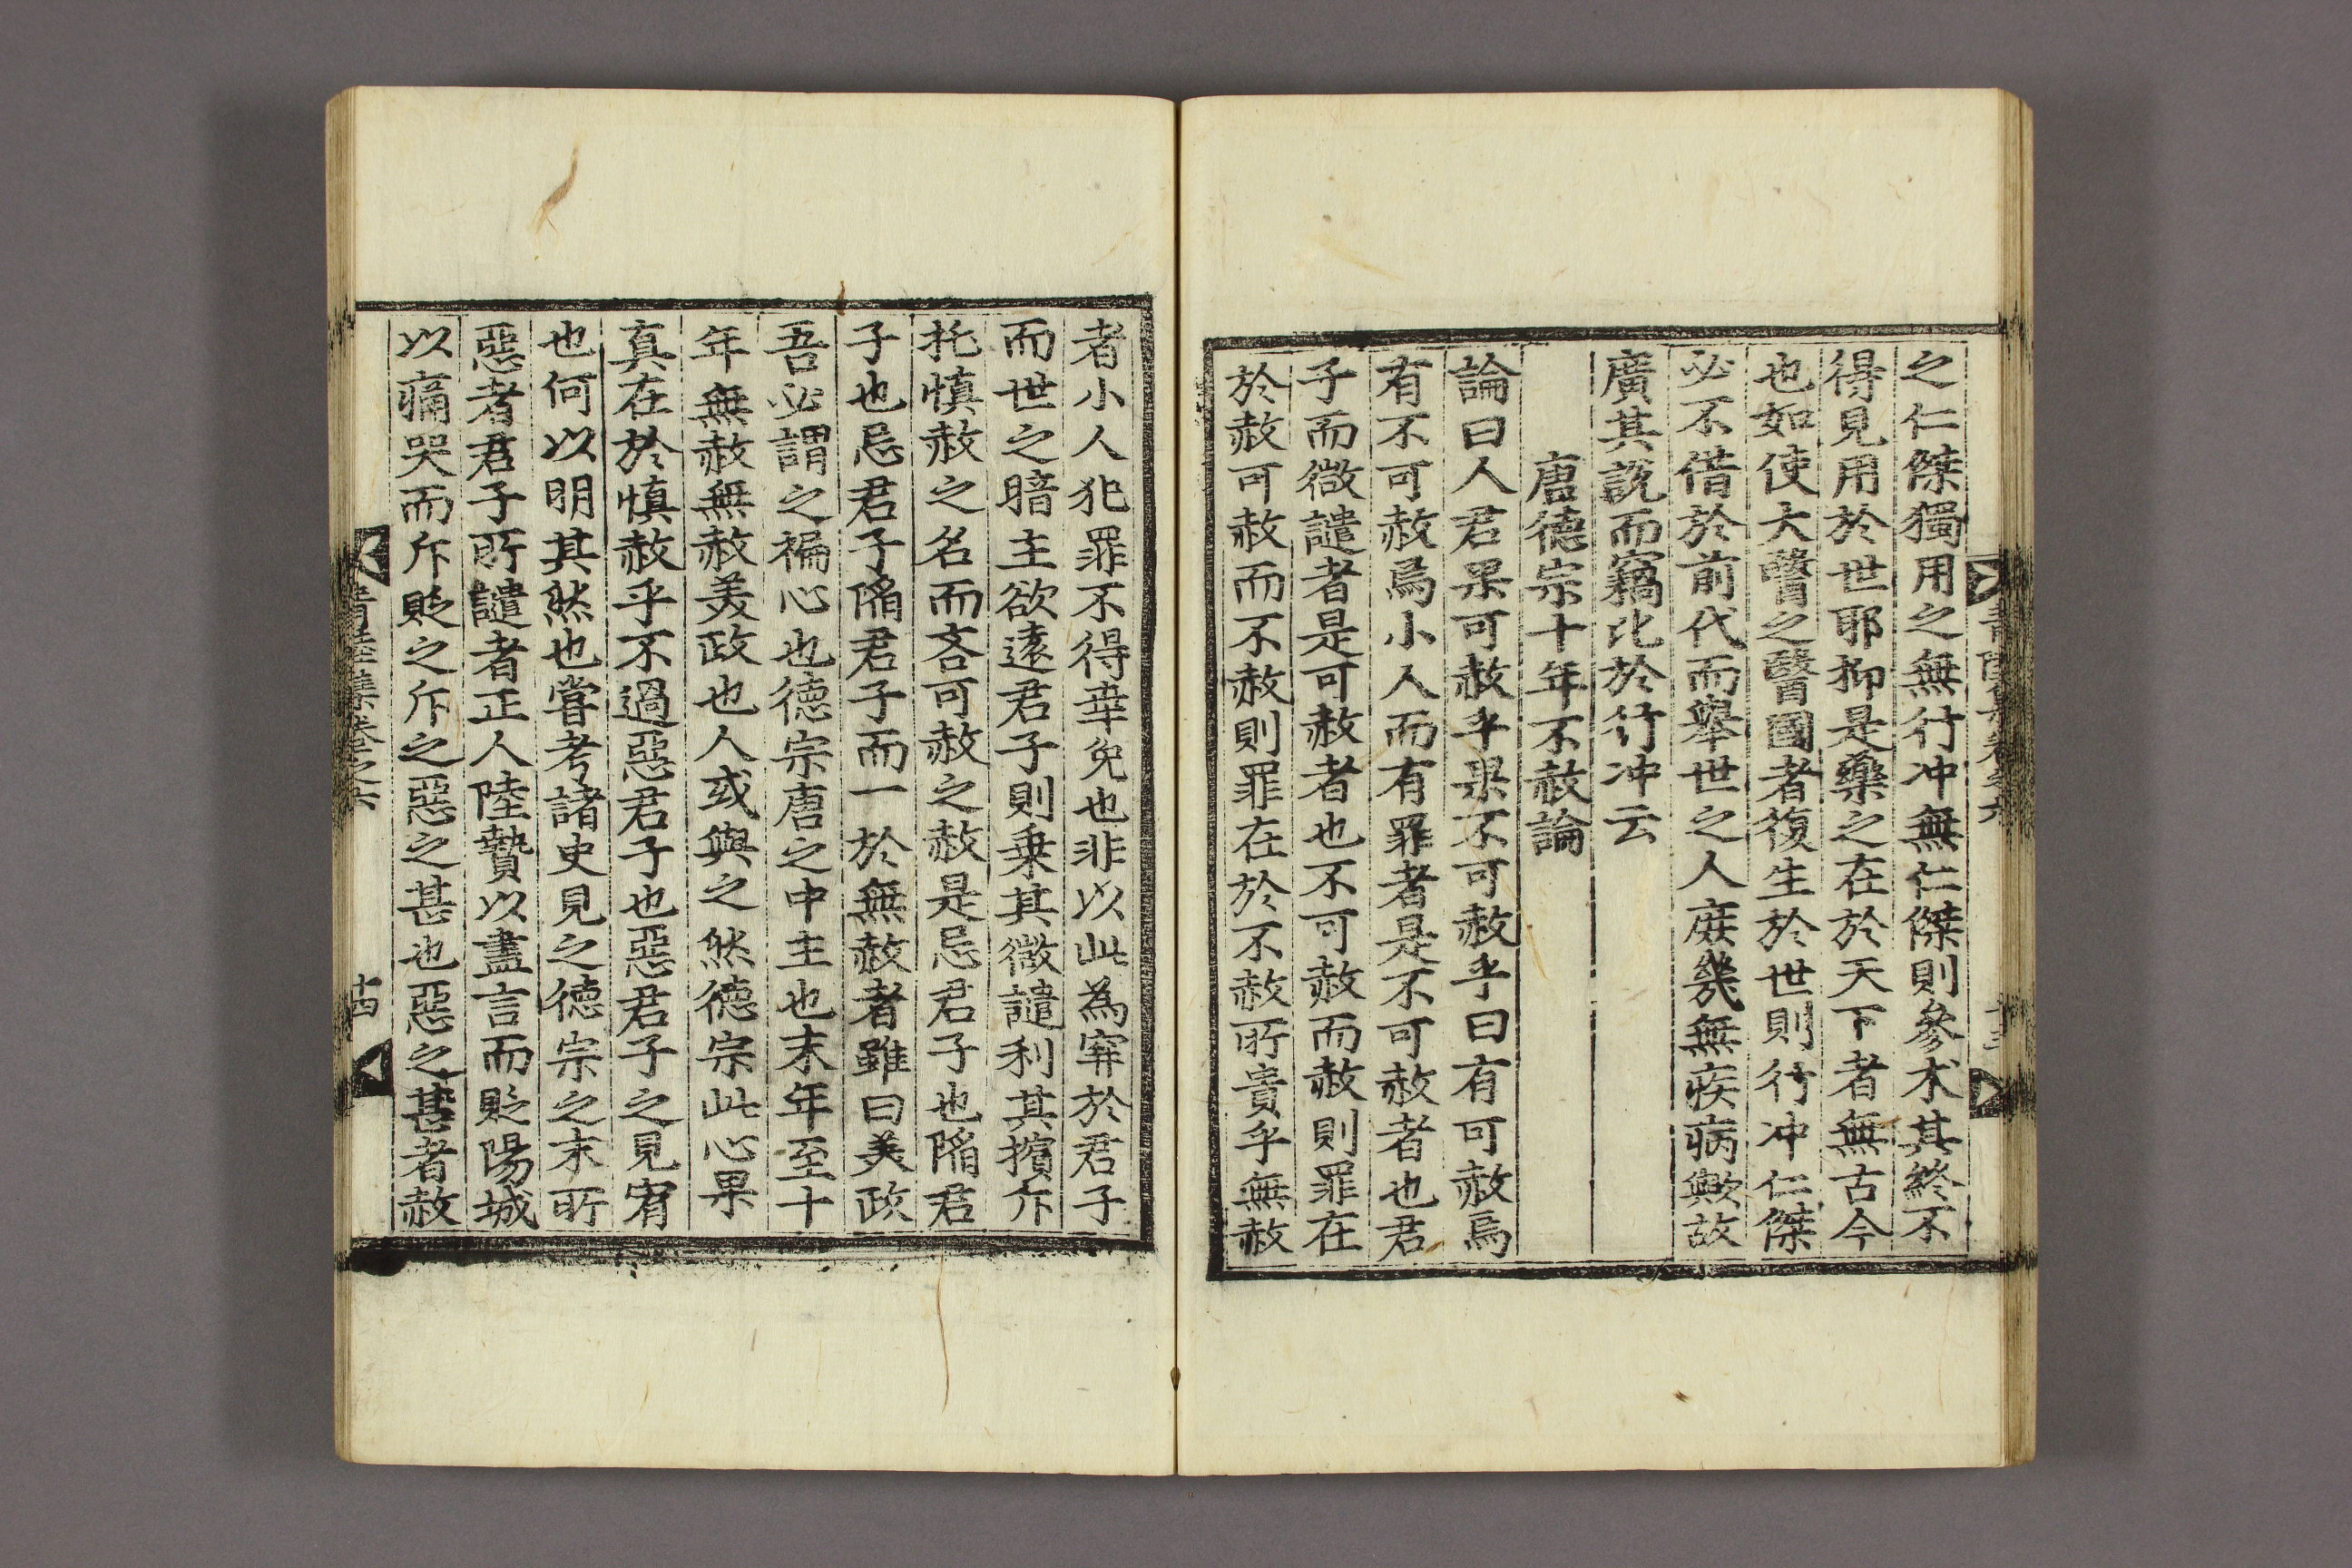 之仁傑獨用之無行冲無仁傑則參朮其終不
得見用於世耶抑是藥之在於天下者無古今
也如使大醫之醫國者復生於世則行冲仁傑
必不借於前代而擧世之人庶幾無疾病歟故
廣其說而竊比於行冲云
唐德宗十年不赦論
論曰人君果可赦乎果不可赦乎曰有可赦焉
有不可赦焉小人而有罪者是不可赦者也君
子而微譴者是可赦者也不可赦而赦則罪在
於赦可赦而不赦則罪在於不赦所貴乎無赦
者小人犯罪不得幸免也非以此爲穽於君子
而世之暗主欲遠君子則乗其微譴利其擯斥
托慎赦之名而吝可赦之赦是忌君子也陷君
子也忌君子陷君子而一於無赦者雖曰美政
吾必謂之褊心也德宗唐之中主也末年至十
年無赦無赦美政也人或與之然德宗此心果
真在於慎赦乎不過惡君子也惡君子之見宥
也何以明其然也嘗考諸史見之德宗之末所
惡者君子所譴者正人陸贄以盡言而貶陽城
以痛哭而斥貶之斥之惡之甚也惡之甚者赦
青陸集卷之六
十四